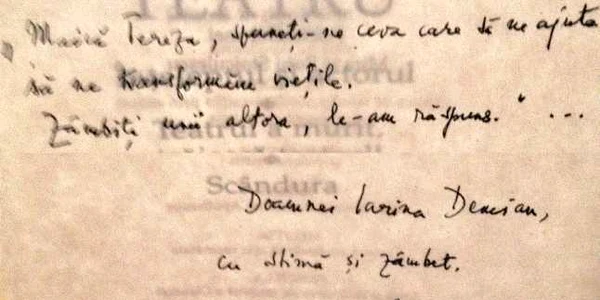 „Maică Tereza, spuneți-ne ceva care să ne ajute
să ne transformăm viețile.
Zâmbiți unii altora, le-am răspuns." ...
Doamnei Iarina Demian,
cu stimă și zâmbet.
TEATRU
Teatrul a murit,
Scândura